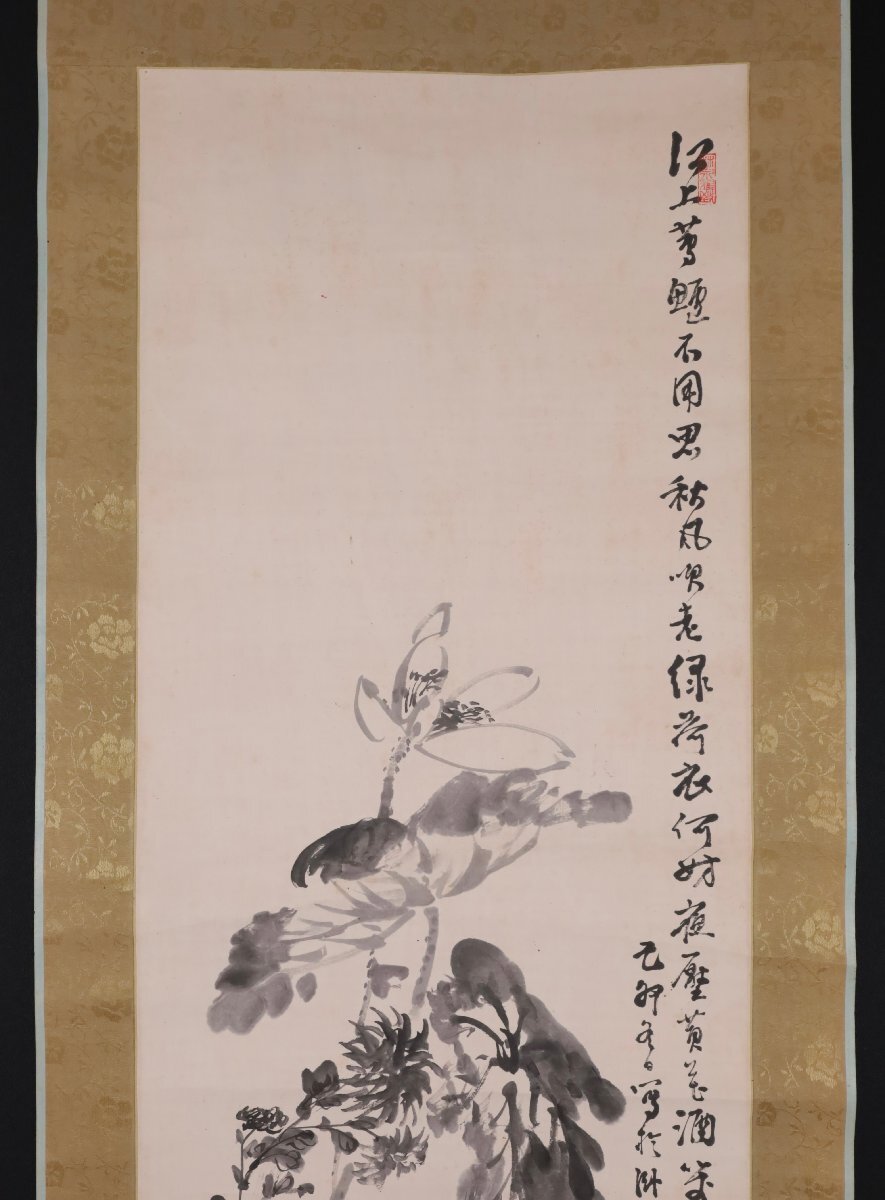 江上蓴鱸不用思秋風吹老緑荷衣何妨夜壓黄花酒笑
己卯冬日寫於臥